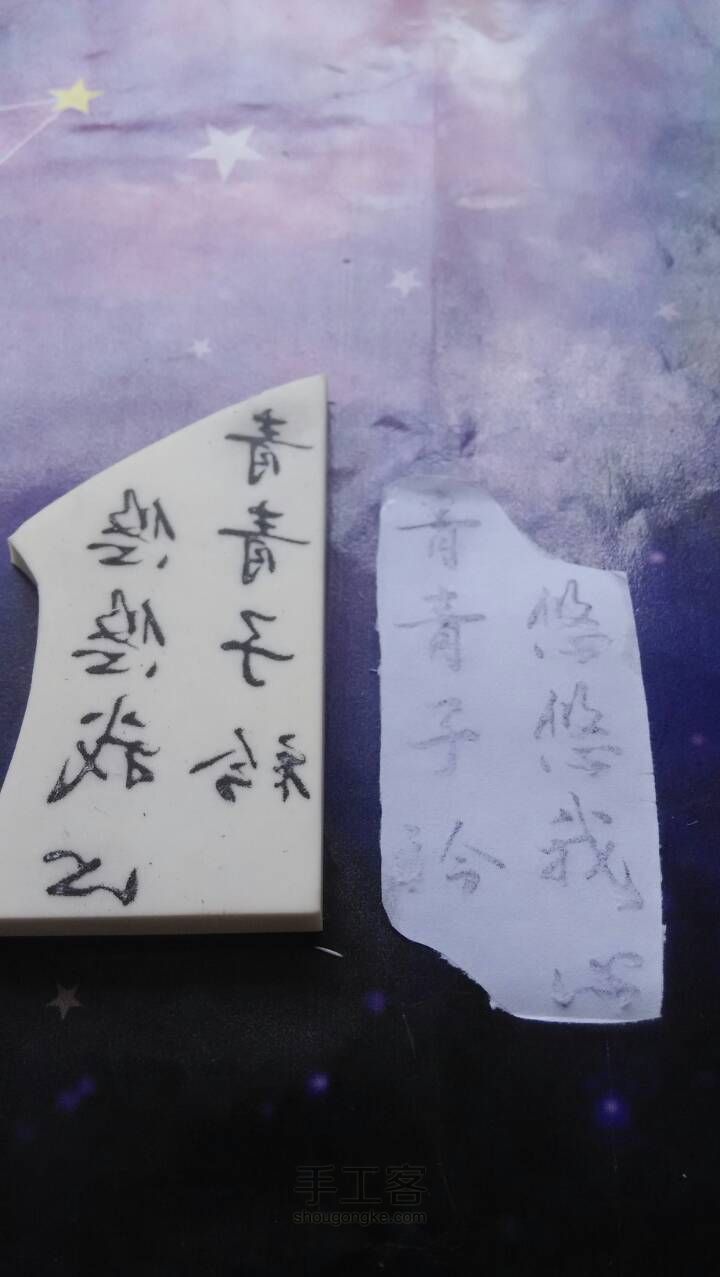 青青子衿
悠悠我心
青青子衿
悠悠我心
手工客
shougongke.com